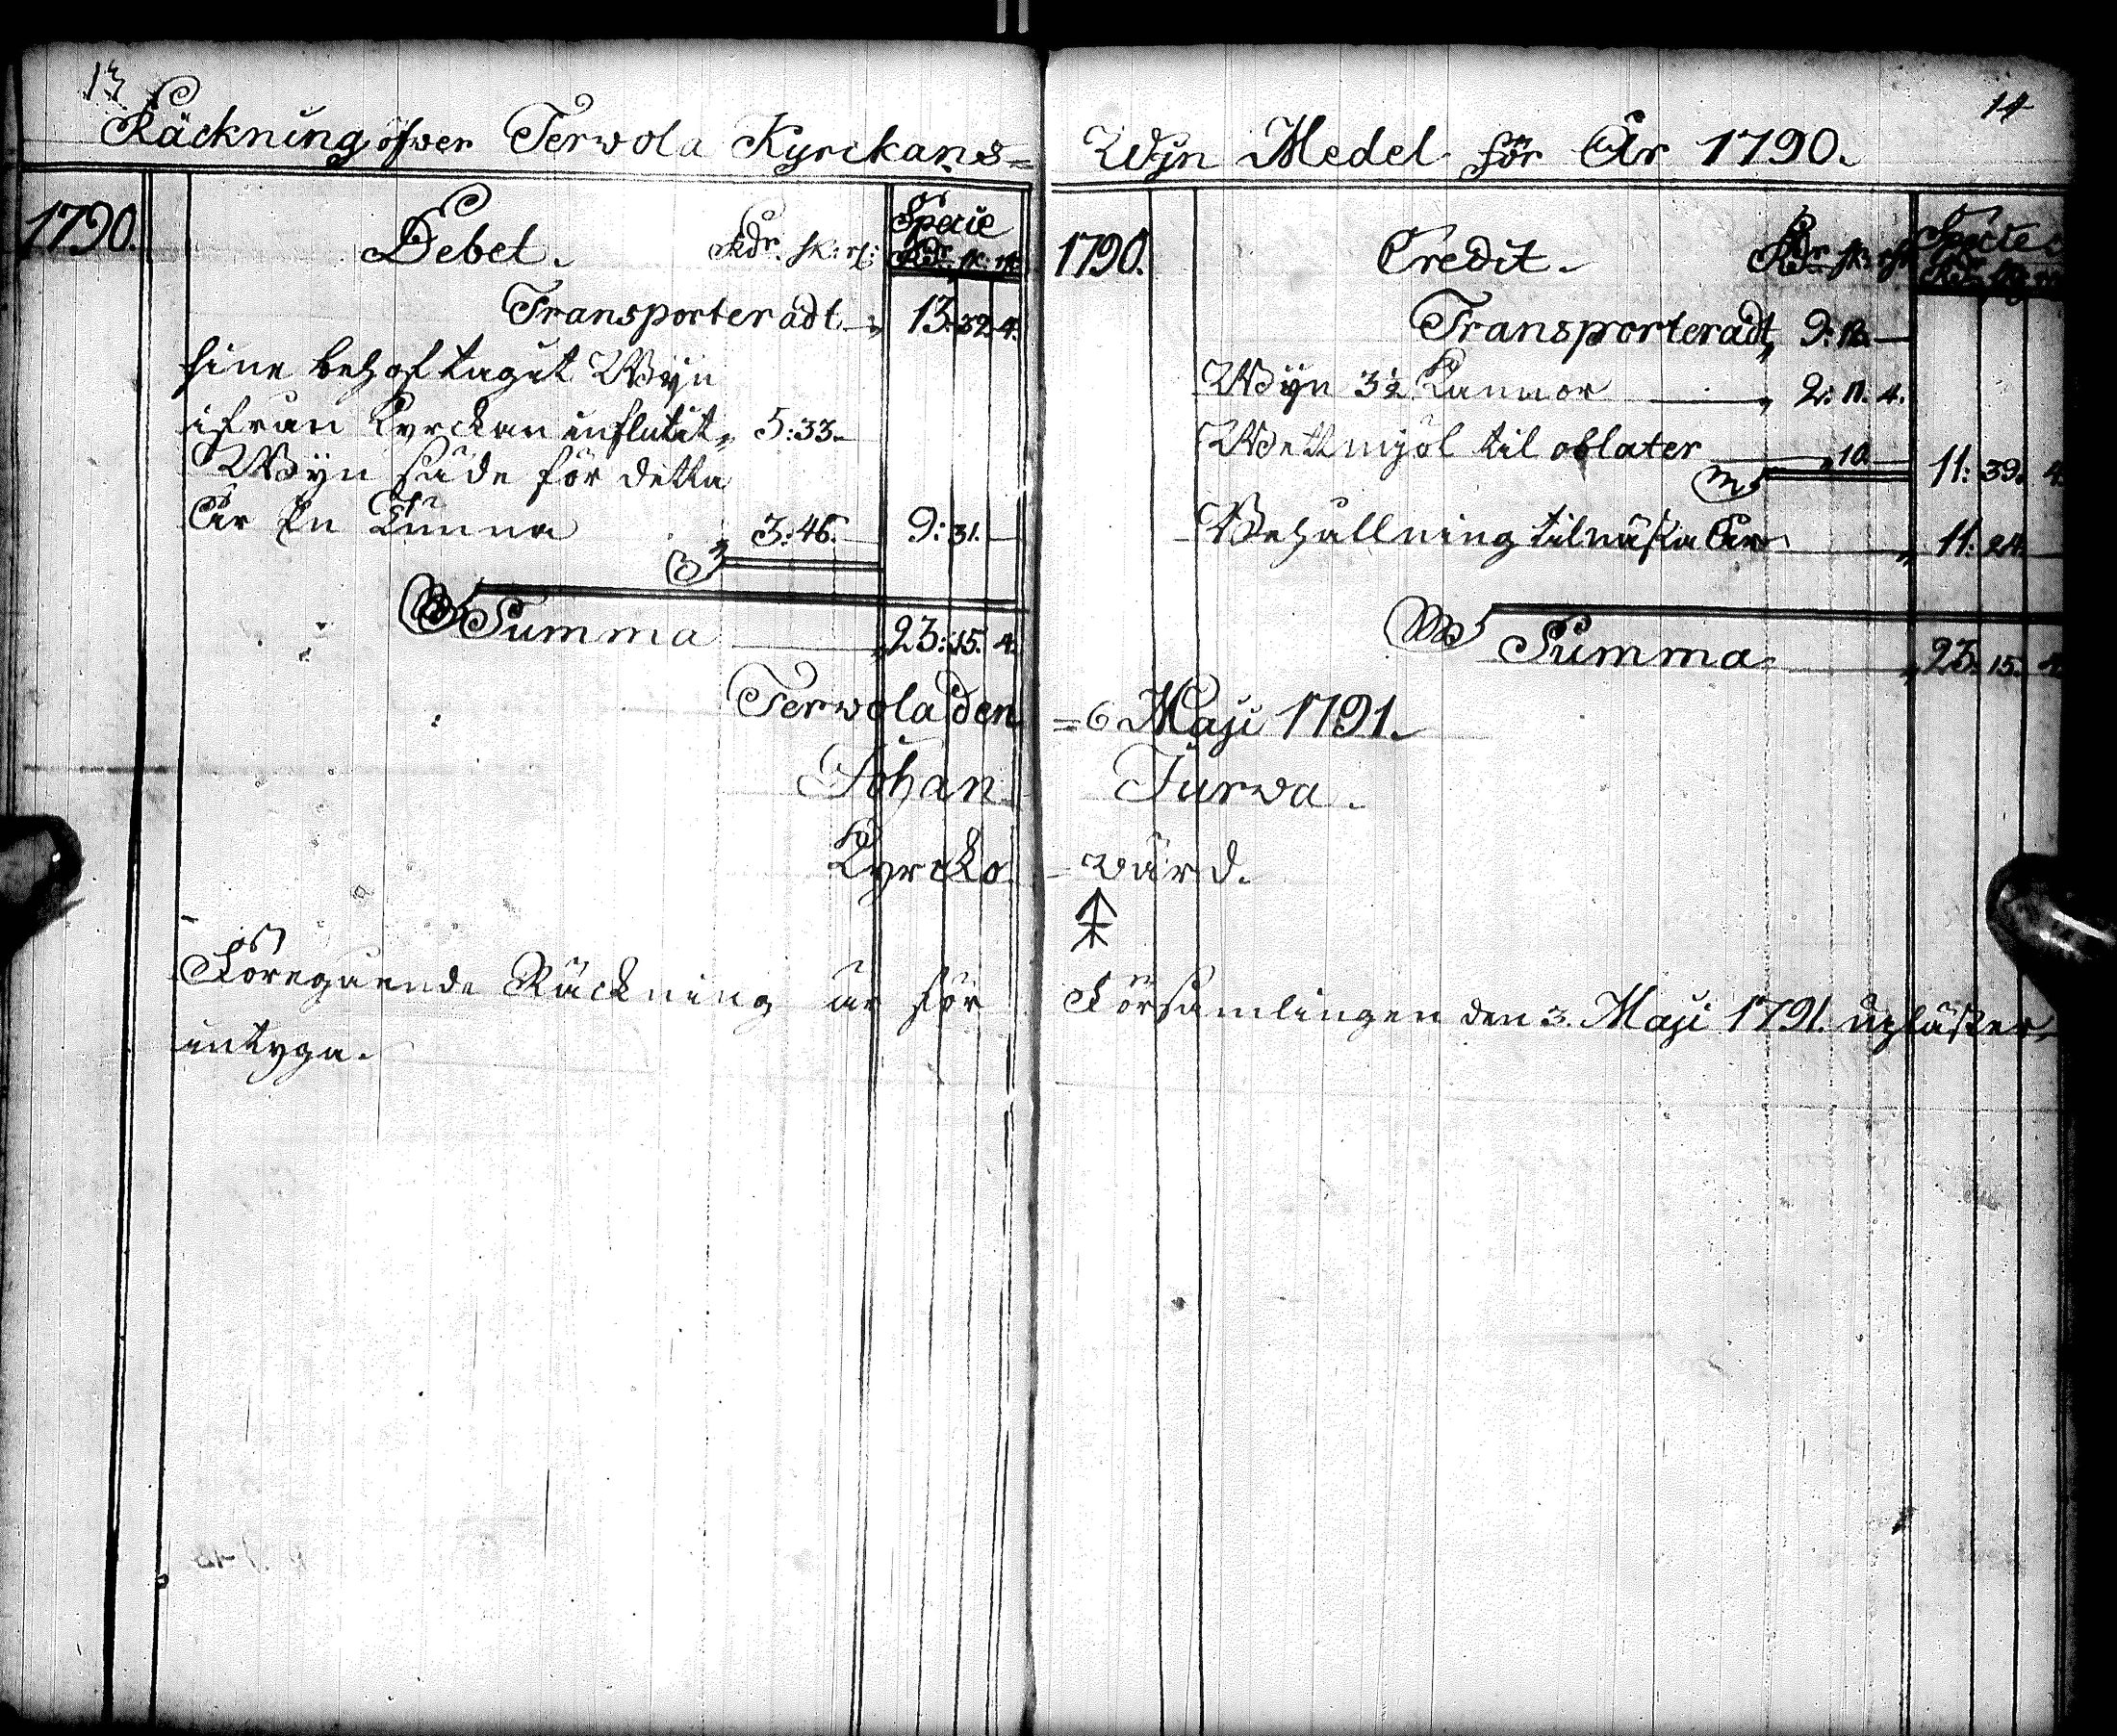 13
Räckning öfwer Terwola Kyrckans=
1790.
Debet. Rdr. sk: rs:
Specie
Rdr sk. rs.
Transporteradt 13. 32. 4.
sine behof tagit Wyn
ifrån Kyrckan influtit 5:33.
Wyn säde för detta
År En Tunna 3:46. 9: 31.
Summa 23: 15. 4.
Terwola den
Johan
Kyrcko
Föregående Räckning är för
intyga.
14
Wyn Medel för År 1790.
1790.
Credit. Rdr sk: rs:
Specie
Rdr sk. rs.
Transporteradt 9: 18.
Wyn 3½ Kannor 2: 11. 4.
Wetmjöl til oblater 10 11: 39. 4.
Behållning til nästa År 11: 24.
Summa 23: 15. 4
=6 Maji 1791.
Jurwa.
-wärd.
Församlingen den 3. Maji 1791. upläst